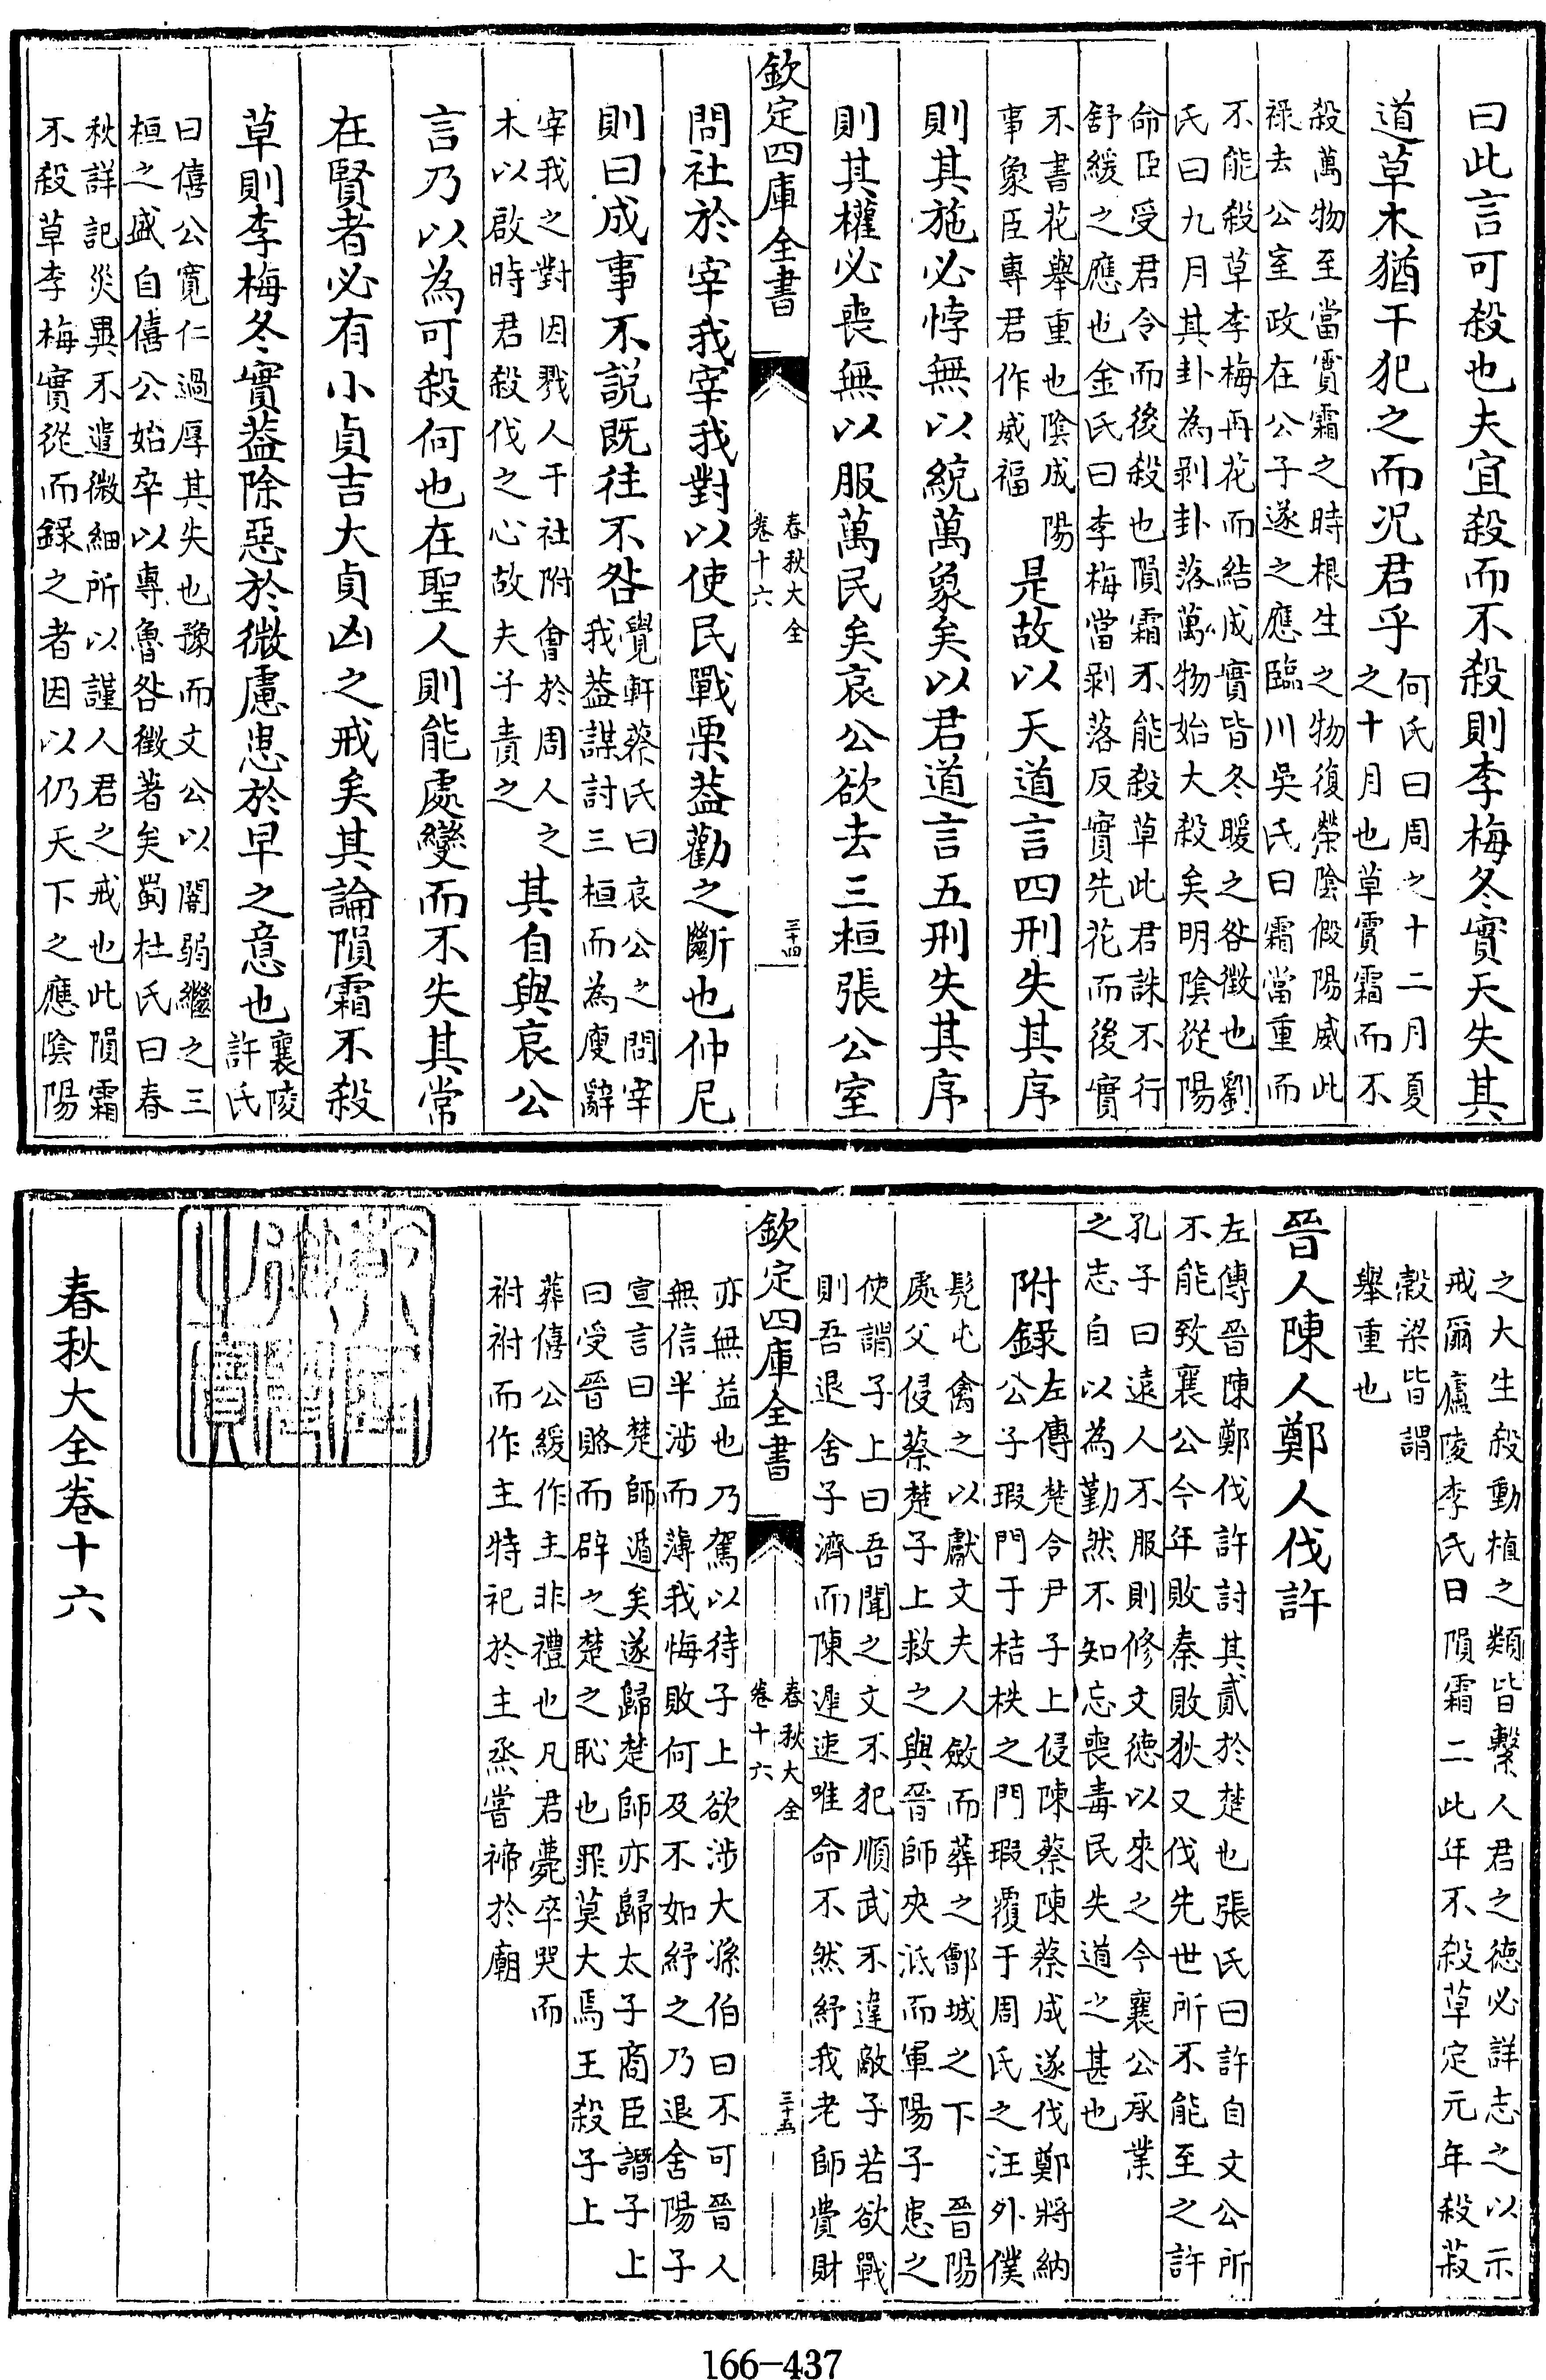 曰此言可殺也夫宜殺而不殺則李梅冬實天失其
道草木猶干犯之而况君乎
何氏曰周之十二月夏
之十月也草實霜而不
殺萬物至當實霜之時根生之物復榮陰假陽威此
祿去公室政在公子遂之應臨川吳氏曰霜當重而
不能殺草李梅再花而結成實皆冬暖之咎徵也劉
氏曰九月其卦為剥剥卦落萬物始大殺矣明陰從陽
命臣受君令而後殺也隕霜不能殺草此君誅不行
舒緩之應也金氏曰李梅當剥落反實先花而後實
不書花舉重也陰成陽
事象臣專君作威福
是故以天道言四刑失其序
則其施必悖無以統萬象矣以君道言五刑失其序
則其權必喪無以服萬民矣哀公欲去三桓張公室
欽定四庫全書
春秋大全
卷十六
三十四
問社於宰我宰我對以使民戰栗葢勸之斷也仲尼
則曰成事不説既往不咎
覺軒蔡氏曰哀公之問宰
我葢謀討三桓而為廋辭
宰我之對因戮人于社附會於周人之
木以啟時君殺伐之心故夫子責之
其自與哀公
言乃以為可殺何也在聖人則能處變而不失其常
在賢者必有小貞吉大貞凶之戒矣其論隕霜不殺
草則李梅冬實葢除惡於微慮患於早之意也
襄陵
許氏
曰僖公寛仁過厚其失也豫而文公以闇弱繼之三
桓之盛自僖公始卒以專魯咎徵著矣蜀杜氏曰春
秋詳記災異不遺微細所以謹人君之戒也此隕霜
不殺草李梅實從而録之者因以仍天下之應陰陽
之大生殺動植之類皆繫人君之徳必詳志之以示
戒爾廬陵李氏曰隕霜二此年不殺草定元年殺菽
榖梁皆謂
舉重也
晉人陳人鄭人伐許
左傳晉陳鄭伐許討其貳於楚也張氏曰許自文公所
不能致襄公今年敗秦敗狄又伐先世所不能至之許
孔子曰遠人不服則修文徳以來之今襄公承業
之志自以為勤然不知忘喪毒民失道之甚也
附錄
左傳楚令尹子上侵陳蔡陳蔡成遂伐鄭將納
公子瑕門于桔柣之門瑕覆于周氏之汪外僕
髠屯禽之以獻文夫人斂而葬之鄶城之下　晉陽
處父侵蔡楚子上救之與晉師夾泜而軍陽子患之
使謂子上曰吾聞之文不犯順武不違敵子若欲戰
則吾退舍子濟而陳遲速唯命不然紓我老師費財
欽定四庫全書
春秋大全
卷十六
三十五
亦無益也乃駕以待子上欲涉大孫伯曰不可晉人
無信半涉而薄我悔敗何及不如紓之乃退舍陽子
宣言曰楚師遁矣遂歸楚師亦歸太子商臣譖子上
曰受晉賂而辟之楚之恥也罪莫大焉王殺子上
葬僖公緩作主非禮也凡君薨卒哭而
祔祔而作主特祀於主烝嘗禘於廟
春秋大全卷十六
166-437